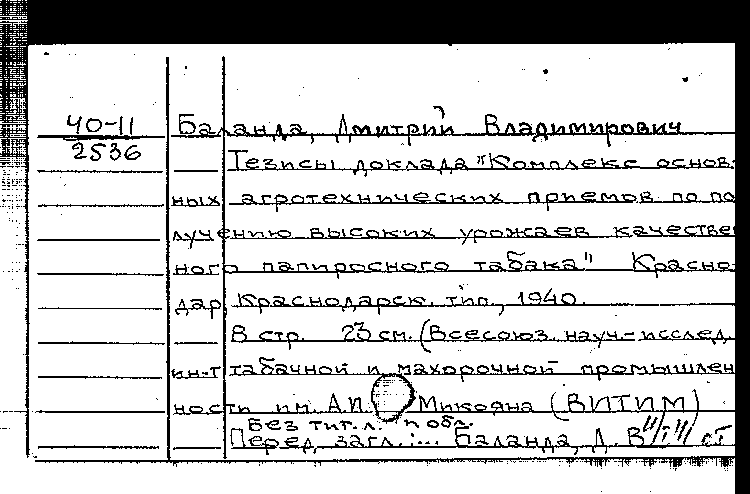 40-11
2536
Баланда, Дмитрий Владимирович
Тезисы доклада "Комплекс основ-
ных агротехнических приемов по по
лучению высоких урожаев качестве
ного папиросного табака" Красно-
дар, Краснодарск. тип., 1940.
8 стр. 23 см. (Всесоюз. науч-исслед.
ин-т табачной и махорочной промышлен
ности им. А.И. Микояна (ВИТИМ)
Без тит. л. и обл.
Перед загл.:... Баланда, Д. В.